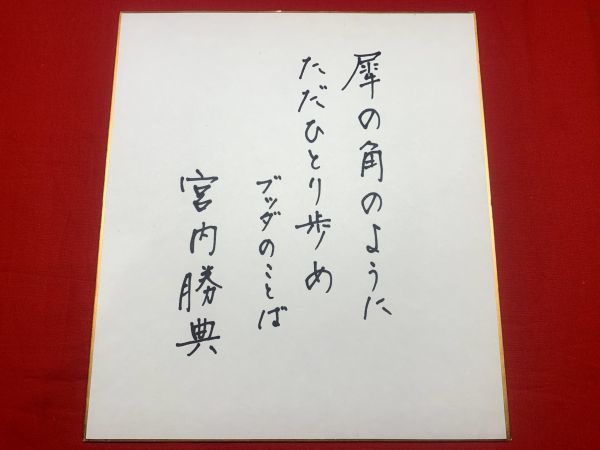 犀の角のように
ただひとり歩め
ブッダのことば
宮内勝典